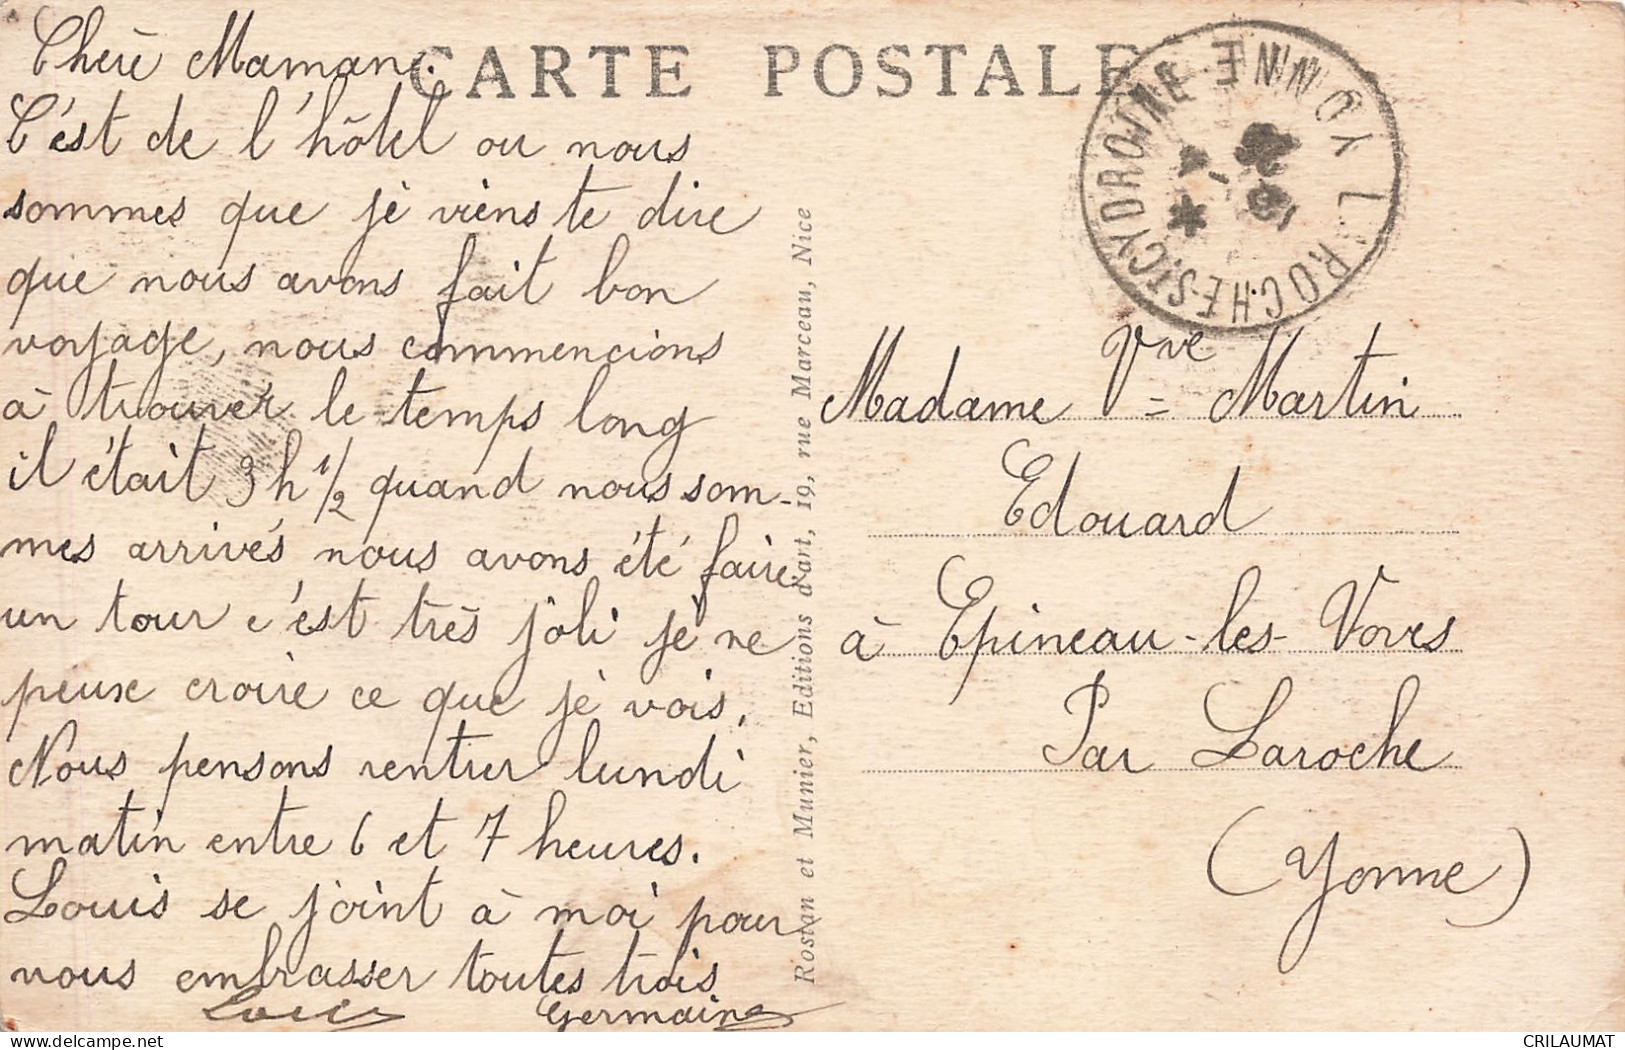 CARTE POSTALE
Chère Maman.
C'est de l'hôtel ou nous
sommes que je viens te dire
que nous avons fait bon
voyage, nous commencions
à trouver le temps long
il était 3h 1/2 quand nous som-
mes arrivés nous avons été faire
un tour c'est très joli je ne
peux croire ce que je vois.
Nous pensons rentrer lundi
matin entre 6 et 7 heures.
Louis se joint à moi pour
vous embrasser toutes trois
Louis Germaine
Rostan et Munier, Editions d'art, 19, rue Marceau, Nice
YONNE
Madame Vve = Martin
Edouard
à Epineau-les-Voves
Par Laroche
(Yonne)
delcampe.net
CRILAUMAT